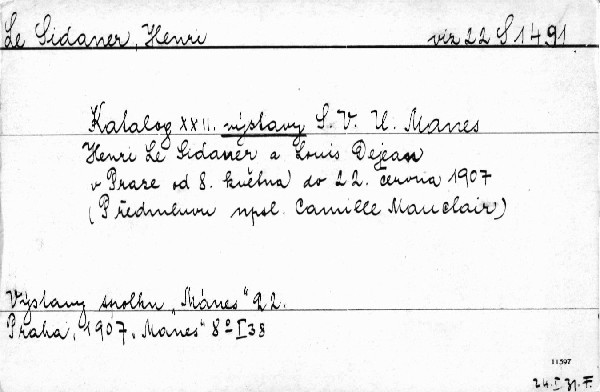 Le Sidaner, Henri viz 22 S 1491
Katalog XXII. výstavy S. V. U. Manes
Henri Le Sidaner a Louis Dejean
v Praze od 8. května do 22. června 1907
(Předmluvou npsl. Camille Mauclair)
Výstavy spolku „Mánes" 22.
Praha, 1907, „Manes" 8º I 38
11597
24. I. 31. F.